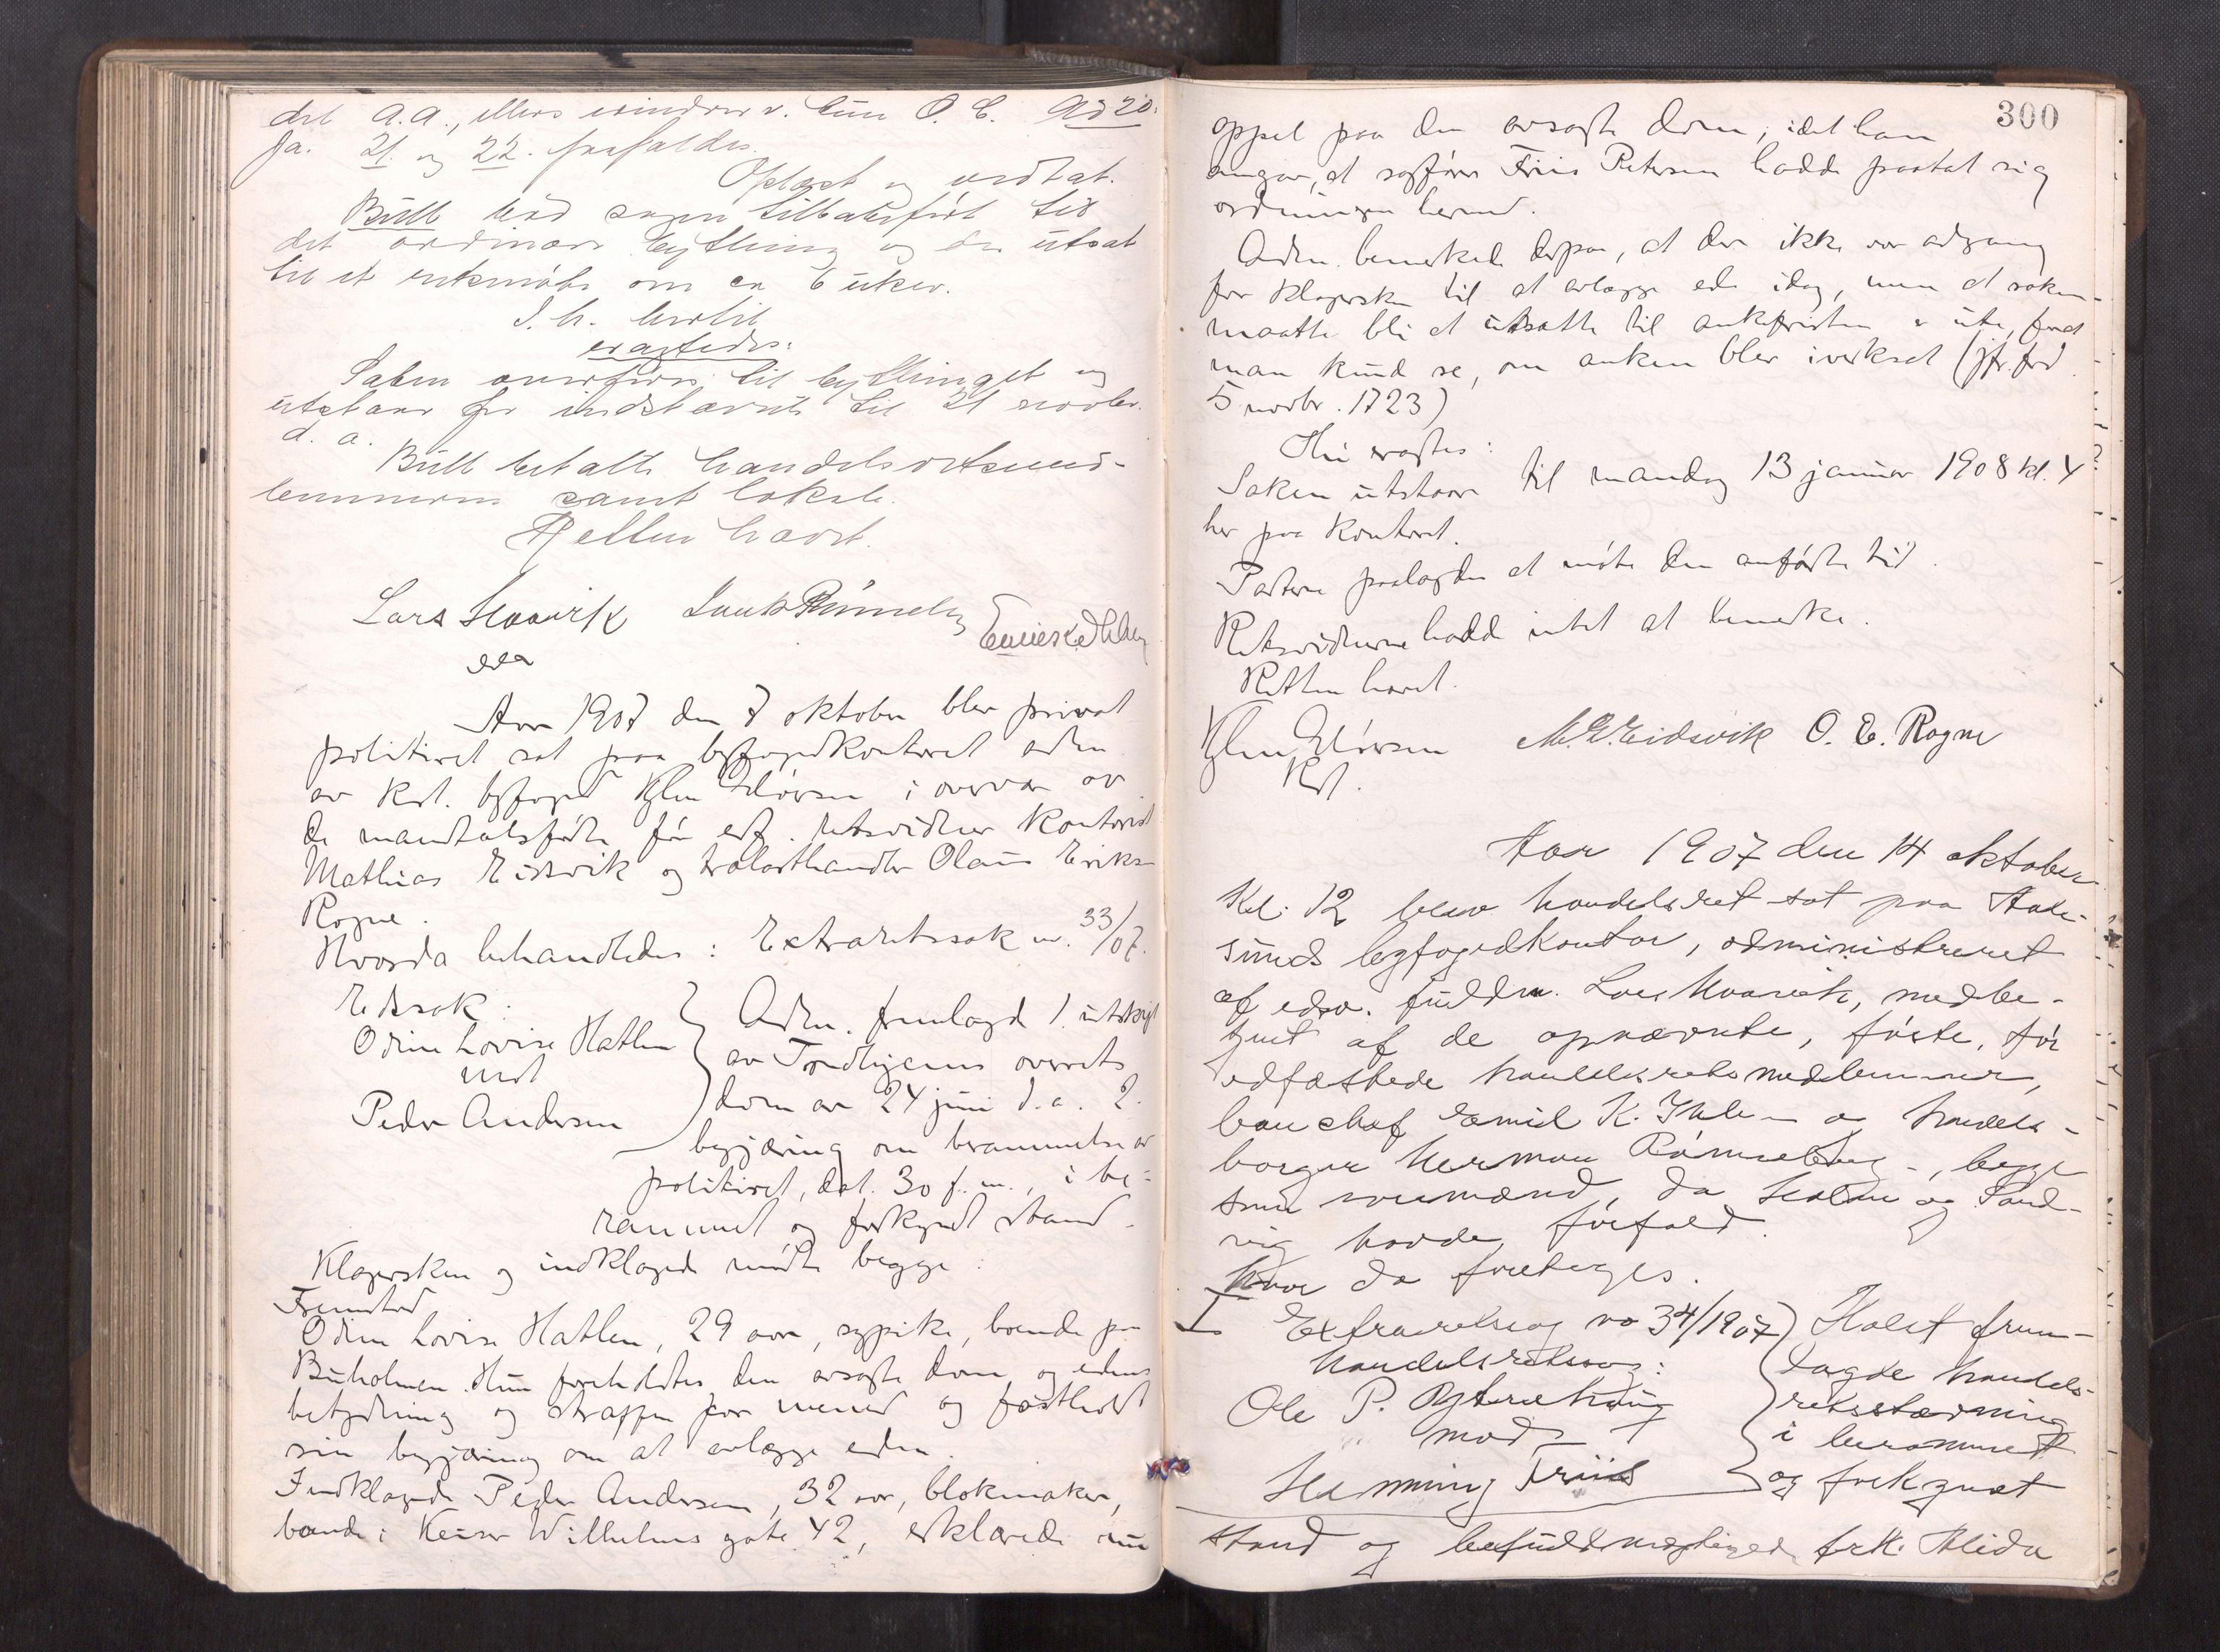 det a.a., ellers erindrer v. hun O. E. Ad 20.
Ja. 21. og 22. frafaldes.
Oplæst og vedtat.
Bull bad sagen tilbakeført til
det ordinære bything og der utsat
til et retsmøte om ca 6 uker.
I. h. hertil
eragtedes:
Saken overføres til bythinget og
utstaar for indstævnte til 21 novbr.
d. a.
Bull betalte handelsretsmed-
lemmerne samt lokale.
Retten hævet.
Lars Hoavik
Aar 1907 den 7 oktober blev privat
politiret sat paa byfogedkontoret adm
av kst. byfoged Elovsen i overvær av
de mandtalsførte før edf. retsvidner kontorist
Mathias Eidsvik og trælasthandler Olaus Eriksen
Rogne.
Hvorda behandledes: Extraretssak nr. 33/07.
Edssak:
Odine Lovise Hatlen
mot
Peder Andersen
Adm. fremlagde 1. utskrift
av Trondhjems overrets
dom av 24 juni d. a. 2.
begjæring om berammelse av
politiret, dat. 30 f. m., i be-
rammet og forkyndt stand.
Klagersken og indklagede møtte begge.
Fremstod
Odine Lovise Hatlen, 29 aar, sypike, boende paa
Buholmen. Hun foreholdtes den avsagte dom og edens
betydning og straffen for mened og fastholdt
sin begjæring om at avlægge eden.
Indklagede Peder Andersen, 32 aar, blokmaker,
boende i Keiser Wilhelms gate 42, erklærede
300
appel paa den avsagte dom, idet han
angav, at sagfører Friis Petersen hadde paatat sig
ordningen hermed.
Adm. bemerkede derpaa, at der ikke var adgang
for klagersken til at avlægge ed idag, men at saken
maatte bli at utsætte til ankefristen er ute, forat
man kunde se, om anken blev iverksat (jfr. frd.
5 novbr. 1723)
Thi eragtes:
Saken utstaar til mandag 13 januar 1908 kl. 4
her paa kontoret.
Parterne paalagdes at møte den anførte tid.
Retsvidnerne hadde intet at bemerke.
Retten hævet.
Elovsen M. E. Eidsvik O. E. Rogne
Kst.
Aar 1907 den 14 oktober
Kl. 12 blev handelsret sat paa Aale-
sunds byfogedkontor, administreret
af edsv. fuldm. Lars Hoavik, medbe-
tjent af de opnævnte, første, før
edfæstede handelsretsmedlemmer,
bankchef Emil K. Ihlen og handels-
borger Herman Rønneberg, begge
som varamænd, da Holm og Sand-
vig havde forfald.
Hvor da foretoges.
I Extraretssag no 34/1907
Handelsretssag:
Ole P. Ytrehaug
mod
Henning Friis
Holst frem-
lagde handels-
retsstævning
i berammet
og forkyndt
stand og befuldmægtigede frk. Alida